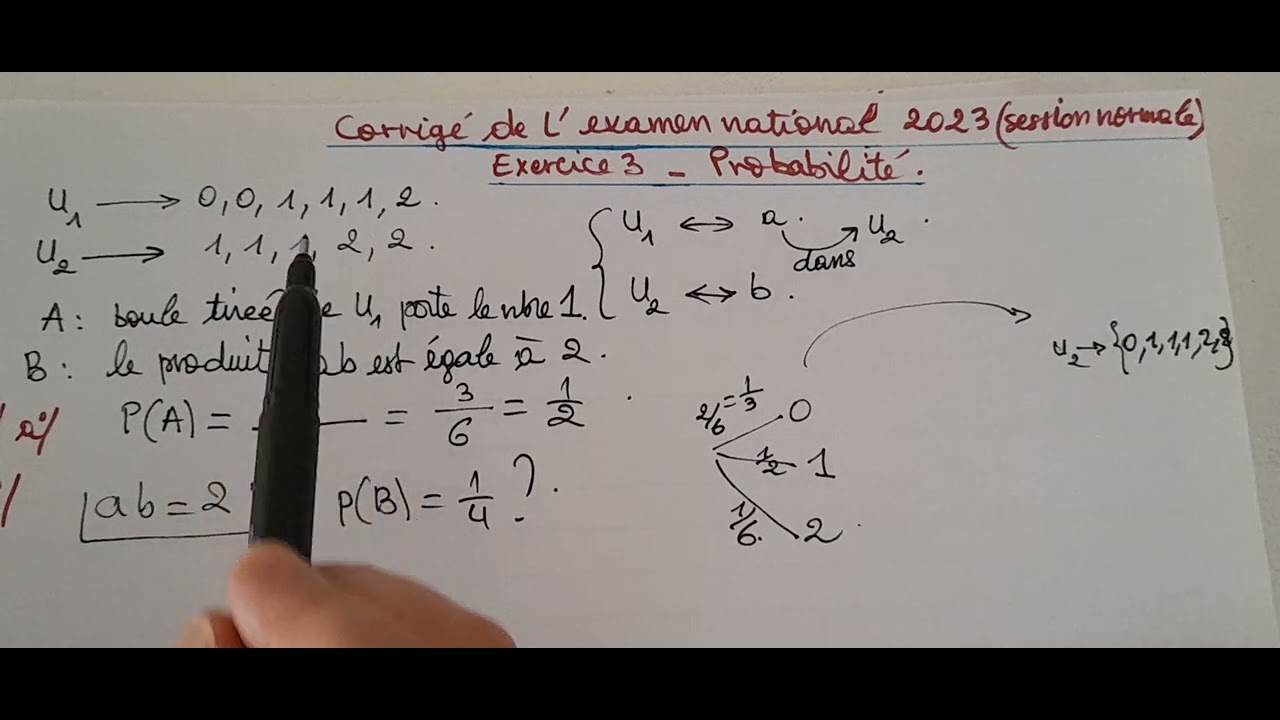 Corrigé de L'examen national 2023 (session normale)
Exercice 3 - Probabilité.
U1 → 0, 0, 1, 1, 1, 2.
U2 → 1, 1, 1, 2, 2.
U1 ↔ a. dans U2.
U2 ↔ b.
A: boule tirée U1 porte le nbre 1.
B: le produit ab est égale à 2.
2°/ P(A) = = 3/6 = 1/2.
ab = 2 P(B) = 1/4 ?.
2/6 = 1/3 0
1/2 1
1/6. 2.
U2 → {0, 1, 1, 1, 2, 2}